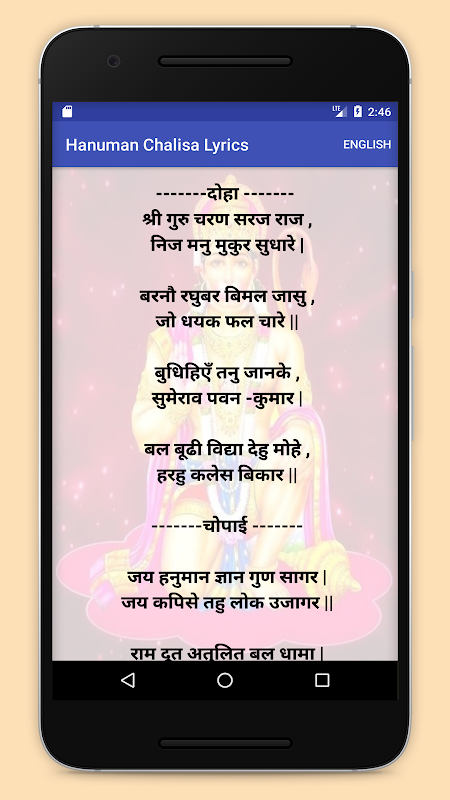 LTE 2:46
Hanuman Chalisa Lyrics ENGLISH
-------दोहा -------
श्री गुरु चरण सरज राज ,
निज मनु मुकुर सुधारे |
बरनौ रघुबर बिमल जासु ,
जो धयक फल चारे ||
बुधिहिएँ तनु जानके ,
सुमेराव पवन -कुमार |
बल बूढी विद्या देहु मोहे ,
हरहु कलेस बिकार ||
-------चोपाई -------
जय हनुमान ज्ञान गुण सागर |
जय कपिसे तहु लोक उजागर ||
राम दूत अतुलित बल धामा |